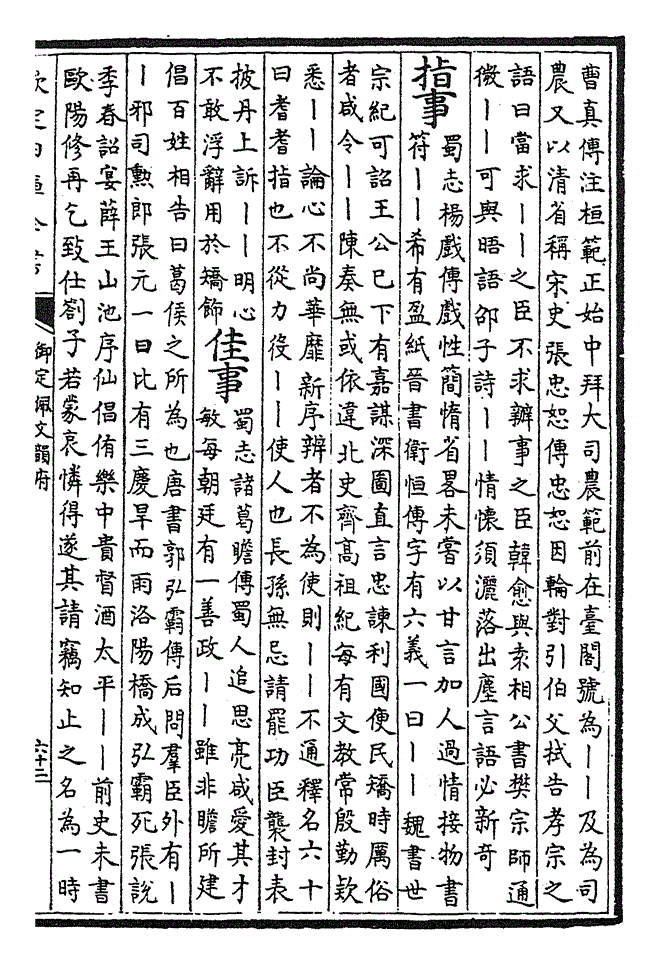 曹真傳注桓範正始中拜大司農範前在臺閣號為――及為司
農又以清省稱宋史張忠恕傳忠恕因輪對引伯父栻告孝宗之
語曰當求――之臣不求辦事之臣韓愈與袁相公書樊宗師通
微――可與晤語邵子詩――情懷須灑落出塵言語必新奇
指事 蜀志楊戲傳戲性簡惰省畧未嘗以甘言加人過情接物書
符――希有盈紙晉書衛恒傳字有六義一曰――魏書世
宗紀可詔王公已下有嘉謀深圖直言忠諫利國便民矯時厲俗
者咸令――陳奏無或依違北史齊髙祖紀每有文教常殷勤欵
悉――論心不尚華靡新序辨者不為使則――不通釋名六十
曰耆耆指也不從力役――使人也長孫無忌請罷功臣襲封表
披丹上訴――明心不敢浮辭用於矯飾
佳事 蜀志諸葛瞻傳蜀人追思亮咸愛其才
敏每朝廷有一善政――雖非瞻所建
倡百姓相告曰葛侯之所為也唐書郭弘霸傳后問羣臣外有―
―邪司勲郎張元一曰比有三慶旱而雨洛陽橋成弘霸死張說
季春詔宴薛王山池序仙倡侑樂中貴督酒太平――前史未書
歐陽修再乞致仕劄子若蒙哀憐得遂其請竊知止之名為一時
欽定四庫全書
御定佩文韻府
六十二